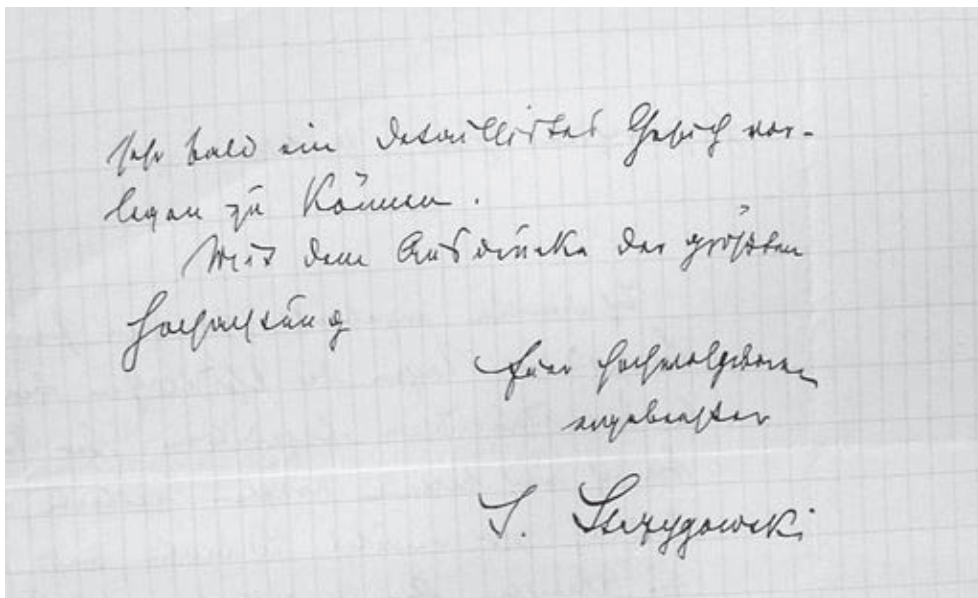 sehr bald ein detaillirtes Gesuch vor-
legen zu können.
Mit dem Ausdrucke der größten
Hochachtung
Euer Hochwolgeboren
ergebenster
J. Strzygowski